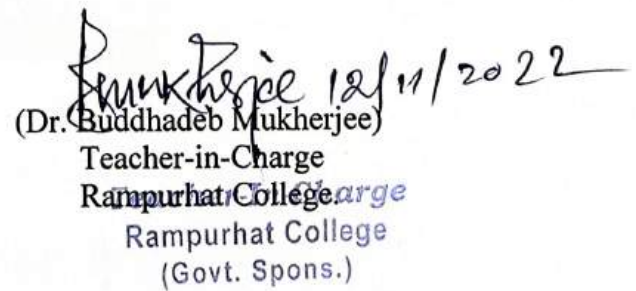 BMukherjee 12/11/2022
(Dr. Buddhadeb Mukherjee)
Teacher-in-Charge
Rampurhat College.
Teacher-In-Charge
Rampurhat College
(Govt. Spons.)